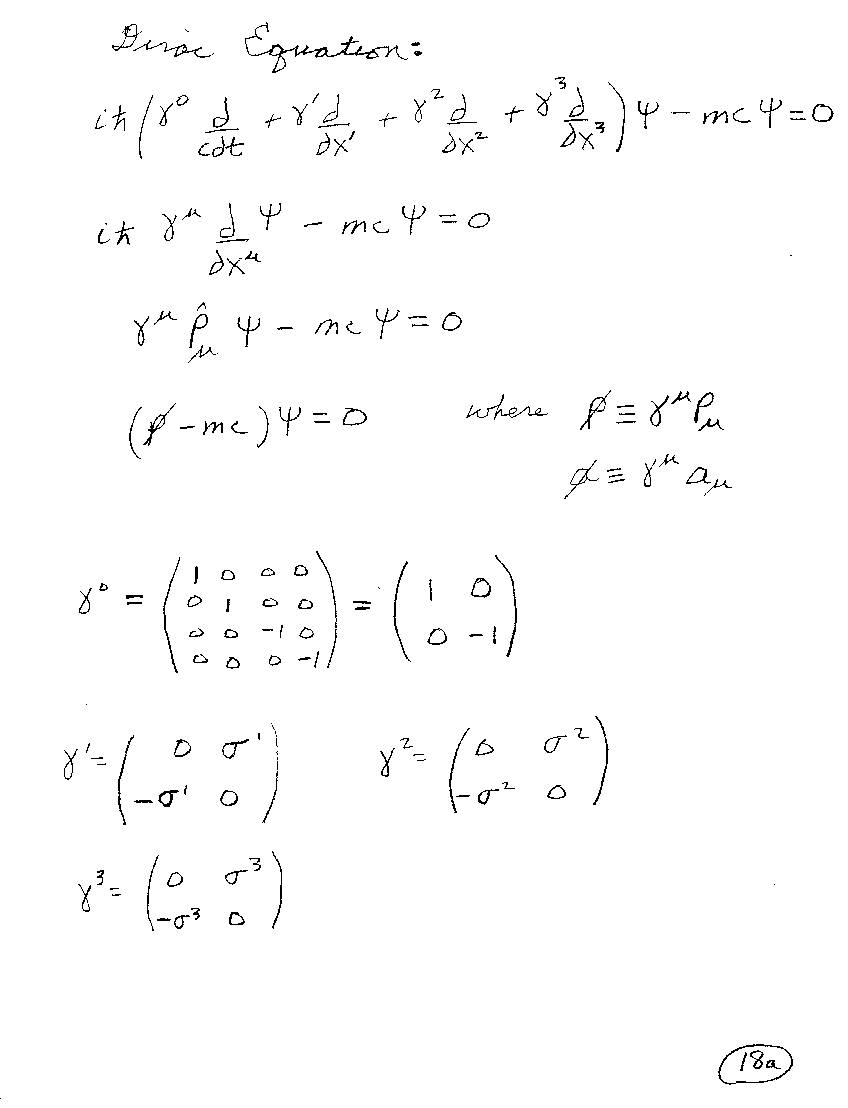 Dirac Equation:
iħ(γ⁰ ∂/c∂t + γ¹ ∂/∂x¹ + γ² ∂/∂x² + γ³ ∂/∂x³)Ψ − mcΨ = 0
iħ γ^μ ∂/∂x^μ Ψ − mcΨ = 0
γ^μ p̂_μ Ψ − mcΨ = 0
(p̸ − mc)Ψ = 0 where p̸ ≡ γ^μ p_μ
a̸ ≡ γ^μ a_μ
γ⁰ = (1 0 0 0; 0 1 0 0; 0 0 −1 0; 0 0 0 −1) = (1 0; 0 −1)
γ¹ = (0 σ¹; −σ¹ 0) γ² = (0 σ²; −σ² 0)
γ³ = (0 σ³; −σ³ 0)
18a